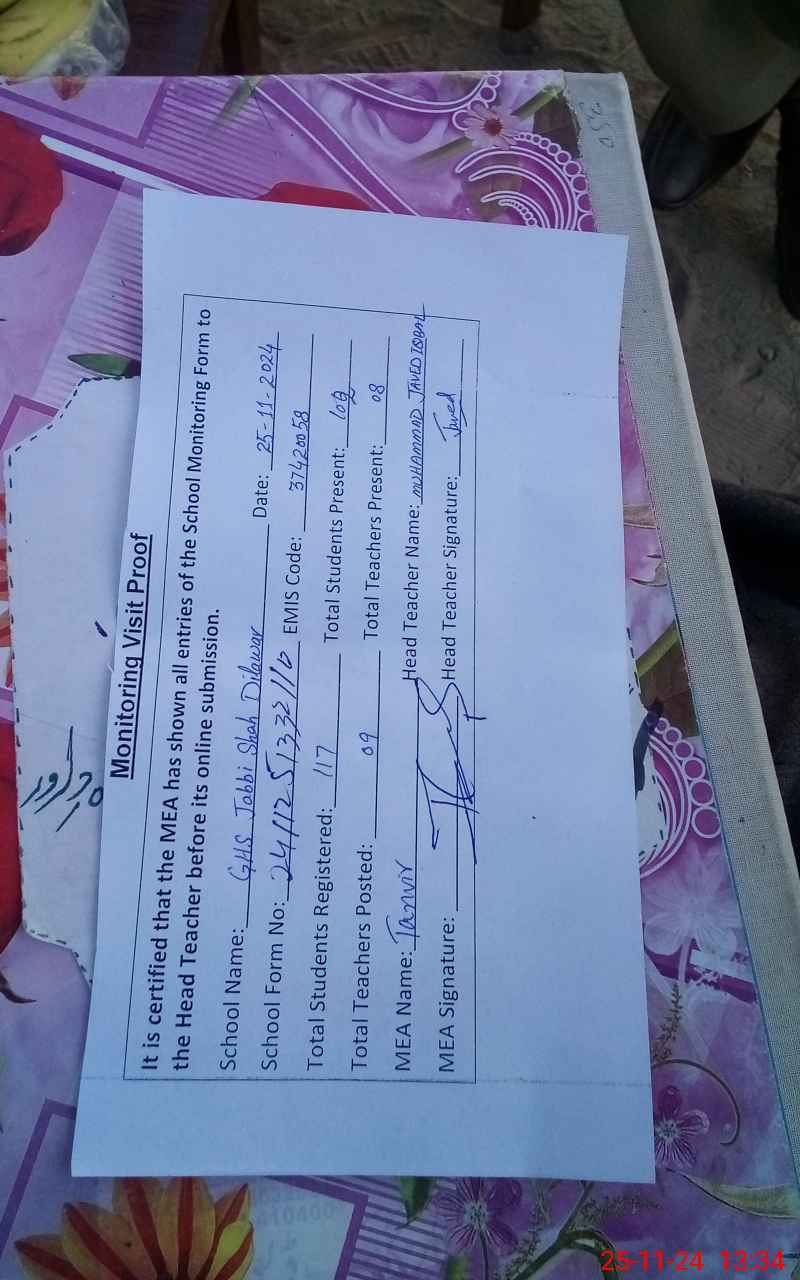 Monitoring Visit Proof
It is certified that the MEA has shown all entries of the School Monitoring Form to
the Head Teacher before its online submission.
School Name: GHS Jabbi Shah Dilawar Date: 25-11-2024
School Form No: EMIS Code: 37420058
Total Students Registered: 117 Total Students Present:
Total Teachers Posted: 09 Total Teachers Present: 08
MEA Name: Tanvir Head Teacher Name: MUHAMMAD JAVED IQBAL
MEA Signature: Head Teacher Signature: Javed
25-11-24 13:34